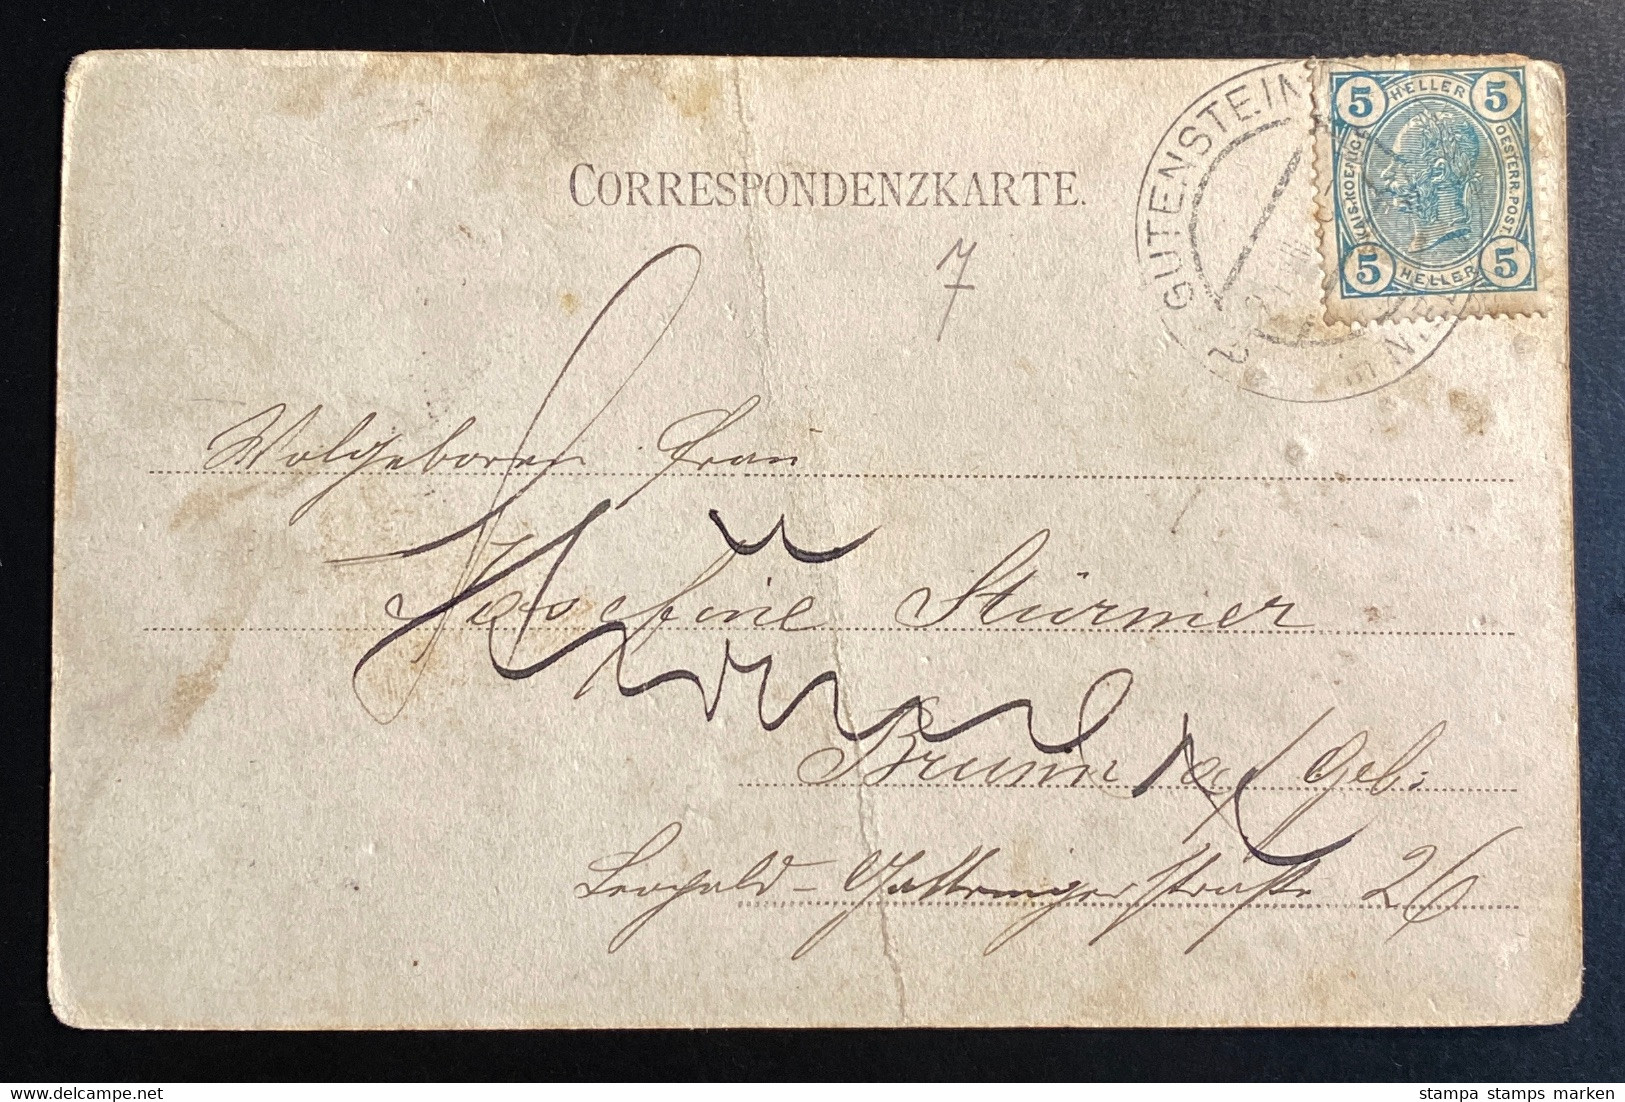 CORRESPONDENZKARTE.
GUTENSTEIN
5 HELLER 5
KAIS. KOENIGL.
OESTERR. POST.
5 HELLER 5
7
Wolgeboren Frau
Josefine Stürmer
Brunn a/ Geb:
Leopold-Gattringerstraße 26
stampa stamps marken